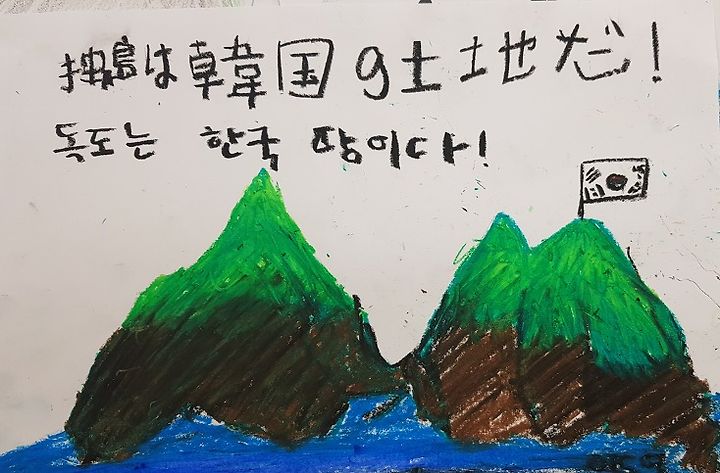 独島は韓国の土地だ!
독도는 한국 땅이다!